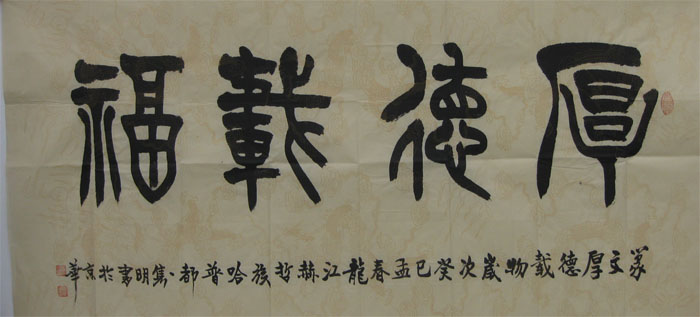 厚德載福
篆文厚德載物歲次癸巳孟春龍江赫哲族哈普都·隽明書於京華